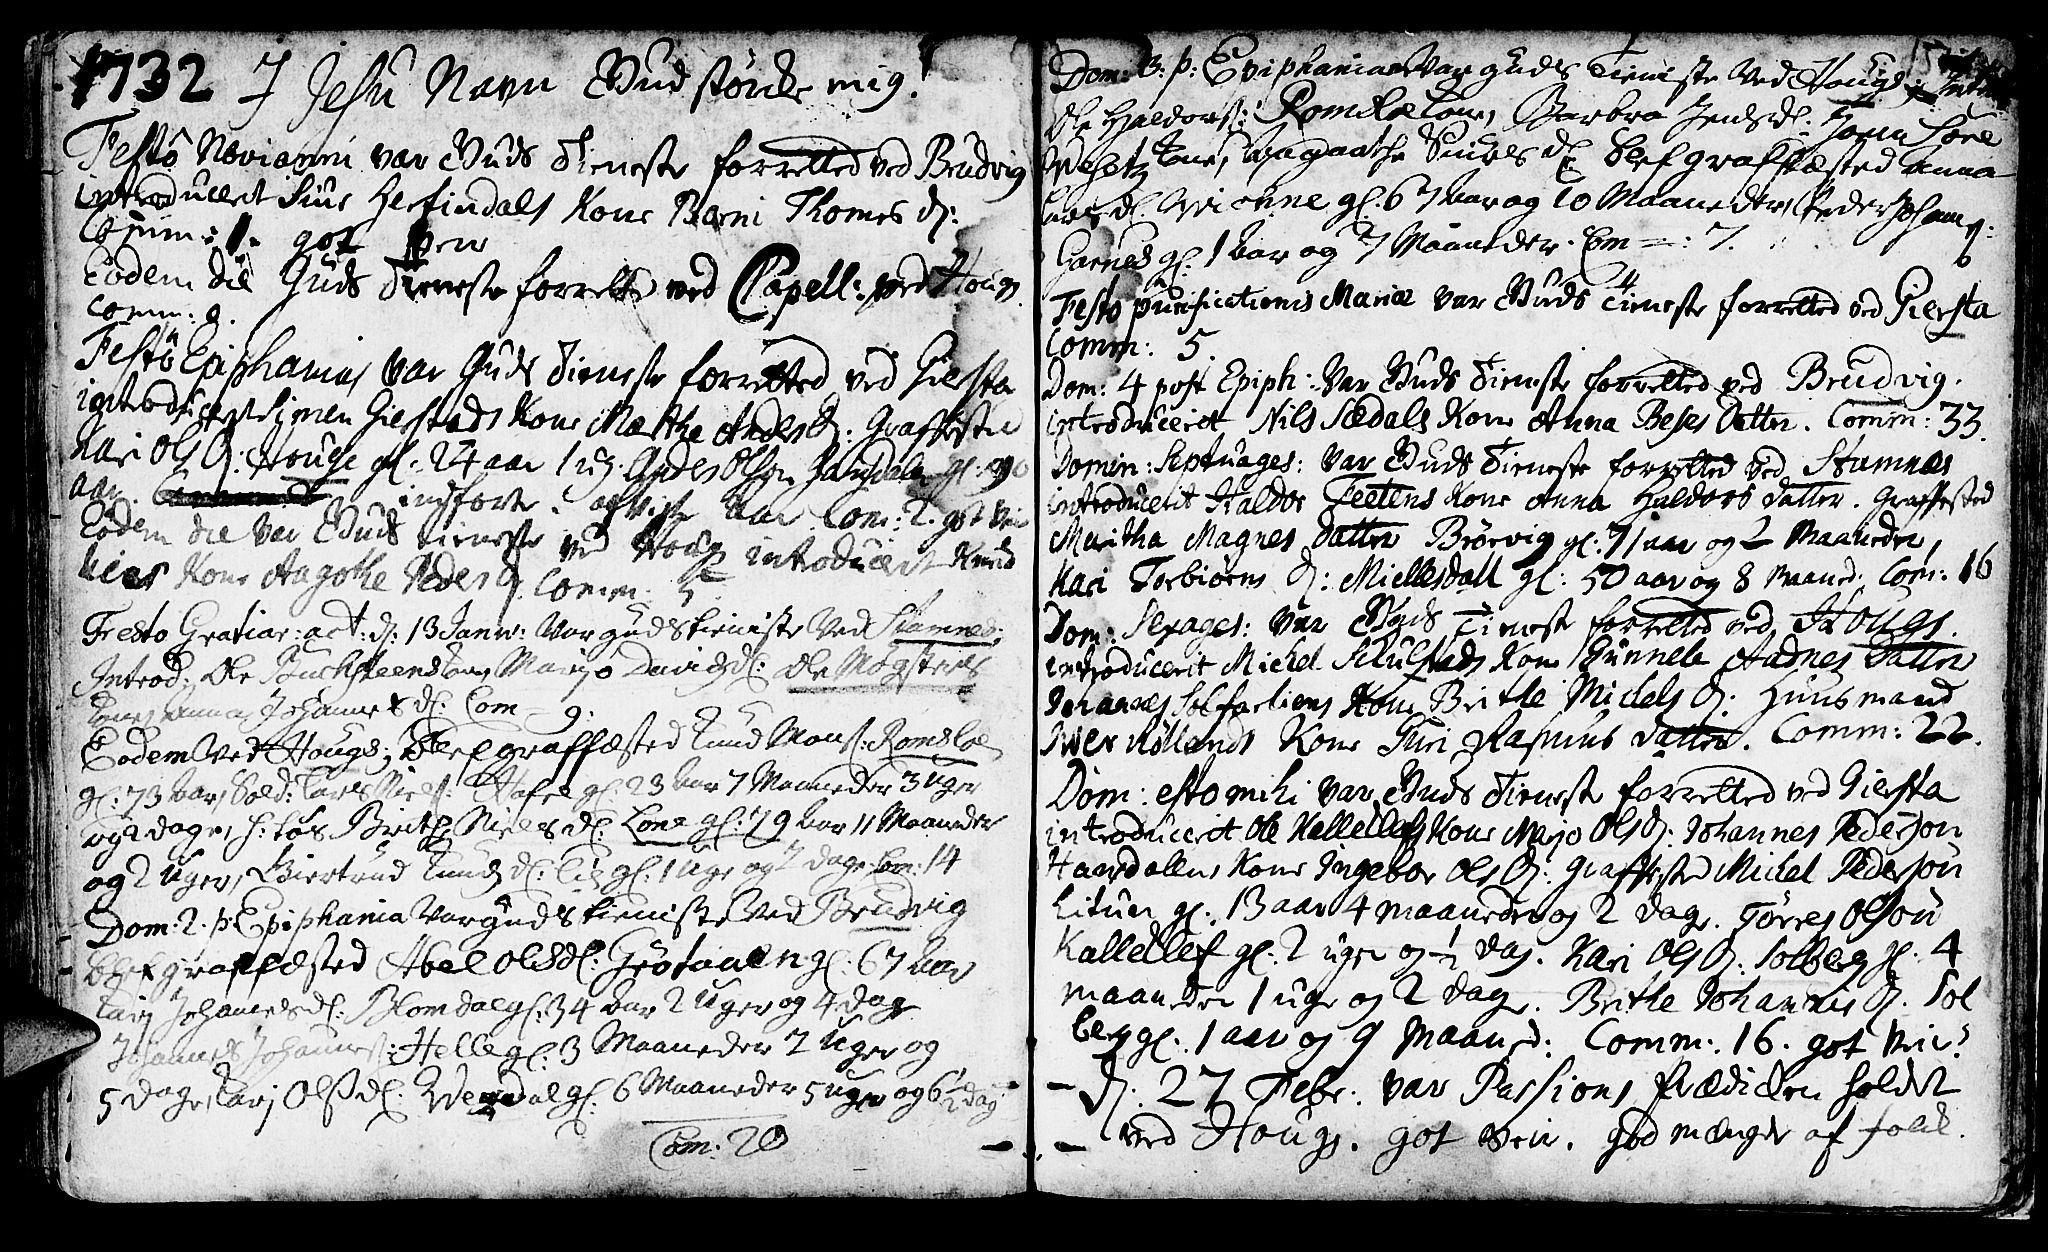 1732 I Jesu Navn Gud störcke mig!
Festô Novi anni var Guds Tieneste forretted ved Brudvig
introducerit Siur Herfindals Kone Barni Thomes D:
Comm: 1. got
Eodem die Guds Tieneste forretted ved Capell: ved Hougs
Comm: 9.
Festô Epiphanias var Guds Tieneste forretted ved Giersta
introducerit Simen Gierstads Kone Marthe Anders D: Graffested
Kari Ols D. Houge gl. 24 aar 1 ug. Anders Olson gl: 90
aar. indförte. Com: 2. got
Eodem die var Guds Tieneste ved Houg introducerit Knud
Kone Aagothe Peders D. Comm: 5
Festo Gratiar: act: d: 13 Janu: Var guds tieniste Ved Stamnes;
Introd: Ole Buchsteens kone, Marjo Davidsdl: Ole Mogsters
kone, Anna Johannes dl. Com = 9.
Eodem Ved Hougs; Blef graffæsted Knud Mons: Romslo
gl: 73 aar, Sold: Lars Niels: gl 23 aar 7 Maaneder 3 Uger
og 2 dage, Brithe Niels dl: Lone gl: 79 aar 11 Maaneder
og 2 Uger, Giertrud Knuds dl: gl: 1 Uge og 2 dage Com: 14
Dom: 2. p: Epiphania Var guds tieniste Ved Brudvig
blef graffæsted Abel Olsdl: Grötauen gl: 67 aar
Karj Johanesdl: Blomdal gl: 34 aar 2 Uger og 4 dage
Johannes Johannes: Helle gl: 3 Maaneder 2 Uger og
5 dage, Karj Olsdl: gl: 6 Maaneder 5 uger og 6 1/2 dag
Com: 20
Dom: 3: p: Epiphania Var guds Tieniste Ved Hougs; Introd:
Ole Haldors: Romslo kone, Barbra Jensdl: John
kone, Aagaathe Siurs dl: blef graffæsted Anna
dl gl. 67 aar og 10 Maaneder, Peder Johans:
Garnes gl: 1 aar og 7 Maaneder. Com = : 7.
Festo purificationis Mariæ var Guds Tieneste forretted ved Giersta
Comm: 5.
Dom: 4 post Epiph: Var Guds Tieneste forretted ved Brudvig.
introducerit Nils Sædals Kone Anna Beses Datter. Comm: 33.
Domin: Septuages: var Guds Tieneste forretted ved Stamnes
introducerit Haldor Feetens Kone Anna Haldors datter. Graffested
Maritha Magnes datter Brörvig gl. 71 aar og 2 Maaneder,
Kari Torbiörns D: Miellesdall gl: 50 aar og 8 maaned: Com: 16
Dom: Sexages: var Guds Tieneste forretted ved Hougs.
introducerit Michel Schulstads Kone Gunnele Aadnes Datter
Kone Brithe Michels D. Huusmand
Iver Röllands Kone Guri Rasmus datter. Comm: 22.
Dom: esto mihi var Guds Tieneste forretted ved Giersta
introducerit Ole Kallellefs Kone Marjo Ols D. Johannes Pederson
Haavdallens Kone Ingebor Ols D. Graffested Michel Pederson
Litun gl. 13 aar 4 maaneder og 2 dage. Törres Olson
Kallellef gl. 2 uger og 1/2 dag. Kari Ols D. Solberg gl. 4
maaneder 1 uge og 2 dage. Brithe Johannis D. Sol
berg gl. 1 aar og 9 maaned: Comm: 16. got Veir.
d: 27 Febr. var Passions Prædicken holdet
ved Hougs. got Veir. god mengde af folck.